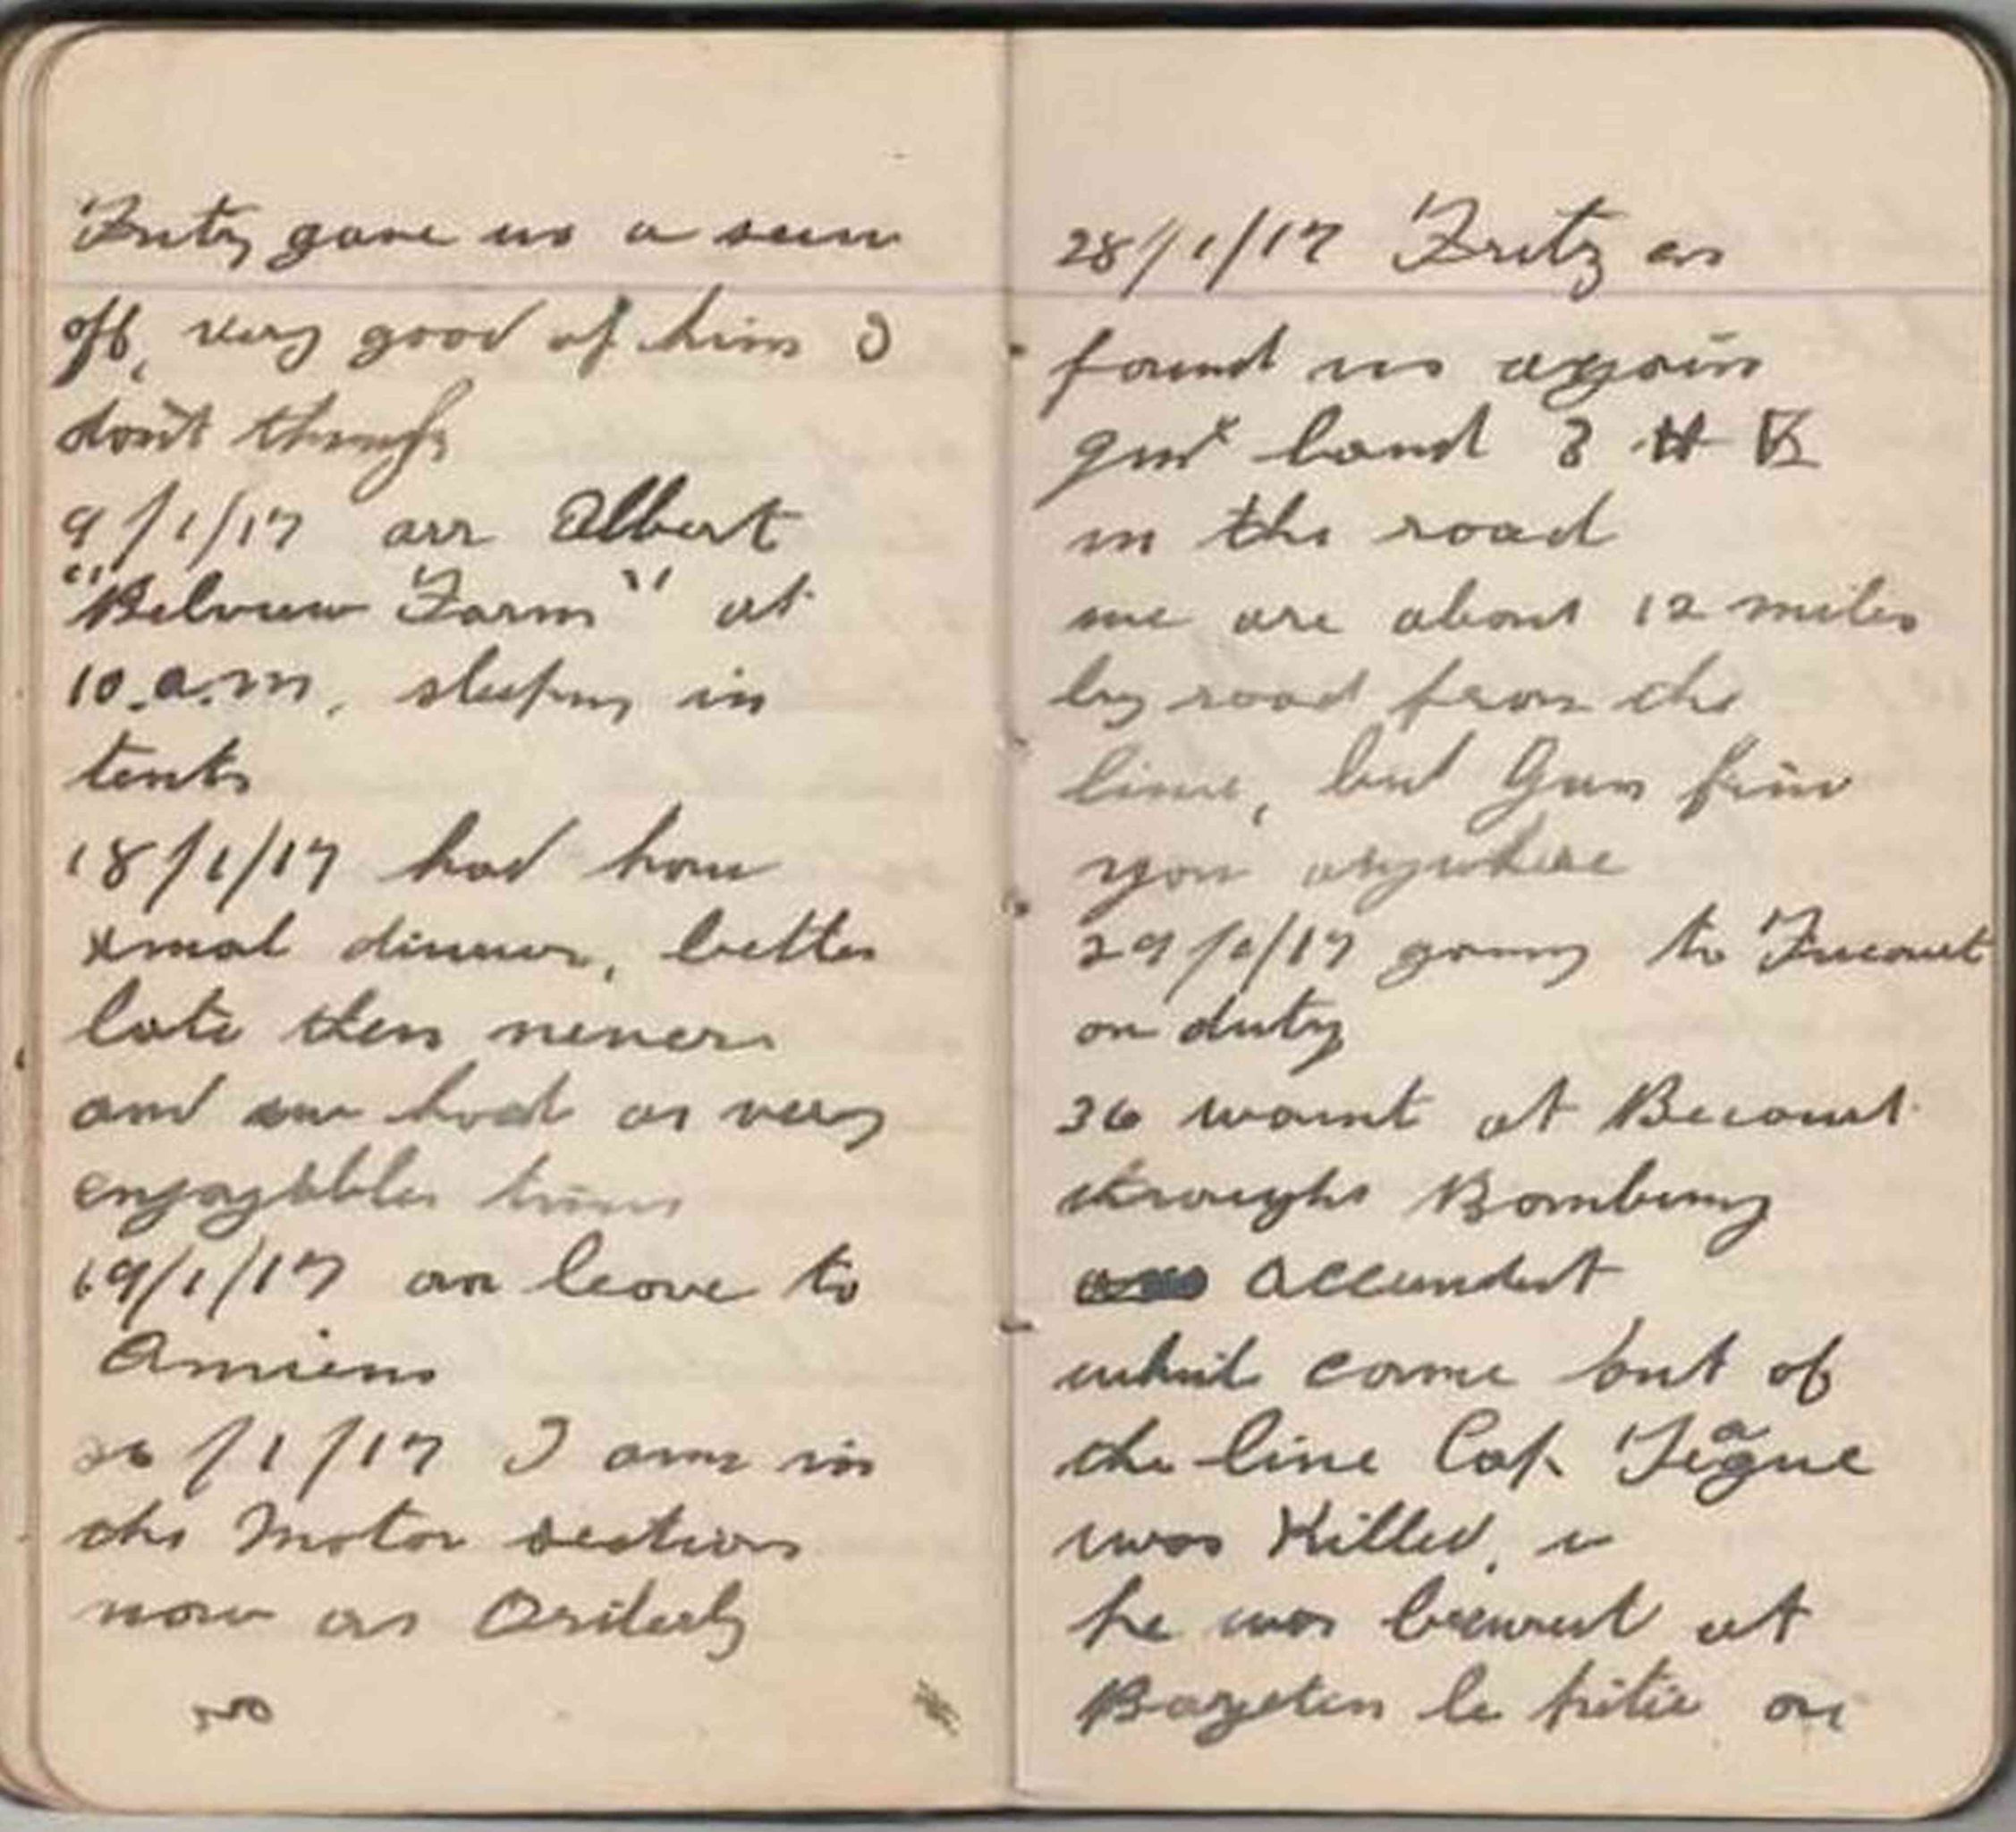 Fritz gave us a seen
off, very good of him I
don't think
9/1/17 arr Albert
"Belview Farm" at
10.a.m, sleeping in
tents
18/1/17 had hour
xmas dinner, better
late then never
and we had a very
enjoyable time
19/1/17 on leave to
Amiens
26/1/17 I am in
the Motor section
now as Orderly
28/1/17 Fritz as
found us again
just land 3 H E
in the road
we are about 12 miles
by road from the
line, but Gun find
you anywhere
29/1/17 going to Fricourt
on duty
36 wount at Becourt
through Bombing
accundent
whil come out of
the line Cap Teague
was Killed,
he was beured at
Bazeten le pitie on